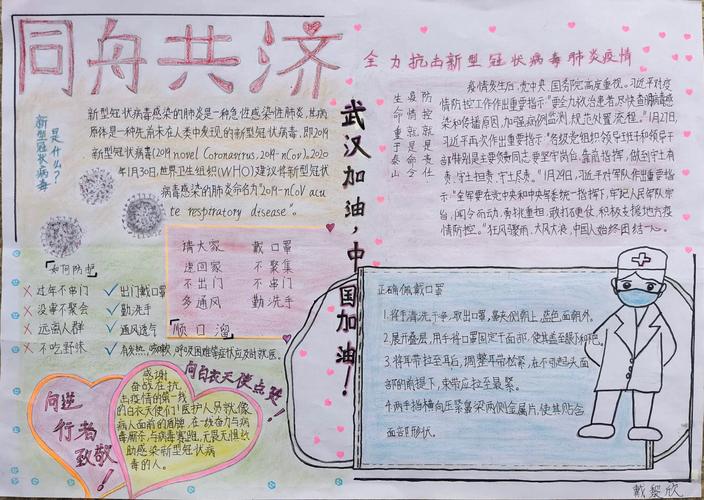 同舟共济
全力抗击新型冠状病毒肺炎疫情
新型冠状病毒
是什么?
新型冠状病毒感染的肺炎是一种急性感染性肺炎,其病
原体是一种先前未在人类中发现的新型冠状病毒,即2019
新型冠状病毒(2019 novel Coronavirus, 2019-nCoV)。2020
年1月30日,世界卫生组织(WHO)建议将新型状
病毒感染的肺炎命名为"2019-nCoV acu
te respiratory disease"。
武汉加油,中国加油!
防控就是责任
疫情就是命令
生命重于泰山
疫情发生后,党中央、国务院高度重视。习近平对疫
情防控工作作出重要指示:"要全力救治患者,尽快查清病毒感
染和传播原因,加强病例监测,规范处置流程。"1月27日,
习近平再次作出重要指示:"各级党组织领导班子和领导干
部特别是主要负责同志要坚守岗位、靠前指挥,做到守土有
责、守土担责、守土尽责。"1月29日,习近平对军队作出重要指
示:"全军要在党中央和中央军委统一指挥下,牢记人民军队宗
旨,闻令而动,勇挑重担,敢打硬仗,积极支援地方疫
情防控。"狂风骤雨,大风大浪,中国人始终团结一心。
「如何防护」
× 过年不串门 ✓ 出门戴口罩
× 没事不聚会 ✓ 勤洗手
× 远离人群 ✓ 通风透气
× 不吃野味 ✓ 有发热,咳嗽,呼吸困难等症状应及时就医。
请大家 戴口罩
速回家 不聚集
不出门 不串门
多通风 勤洗手
「顺口溜」
向逆
行者
致敬!
向白衣天使点赞!
感谢
奋战在抗
击疫情的第一线
的白衣天使们!医护人员就像
病人面前的盾牌,在一线奋力与病
毒厮杀,与病毒赛跑,无畏无惧地
助感染新型冠状病
毒的人。
正确佩戴口罩
1.将手清洗干净,取出口罩,鼻夹侧朝上,蓝色面朝外。
2.展开叠层,用手将口罩固定于面部,使其盖至眼下和
3.将耳带拉至耳后,调整耳带松紧,在不引起头面
部的前提下,束带应拉至最紧。
4.两手指横向压紧鼻梁两侧金属片,使其贴合
面部形状。
戴黎欣